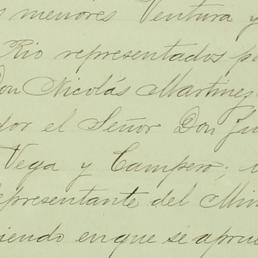 s menores Ventura y
Rio representados po
Don Nicolás Martinez
dor el Señor Don Ju
Vega y Campero; u
epresentante del Min
iendo en que se aprue